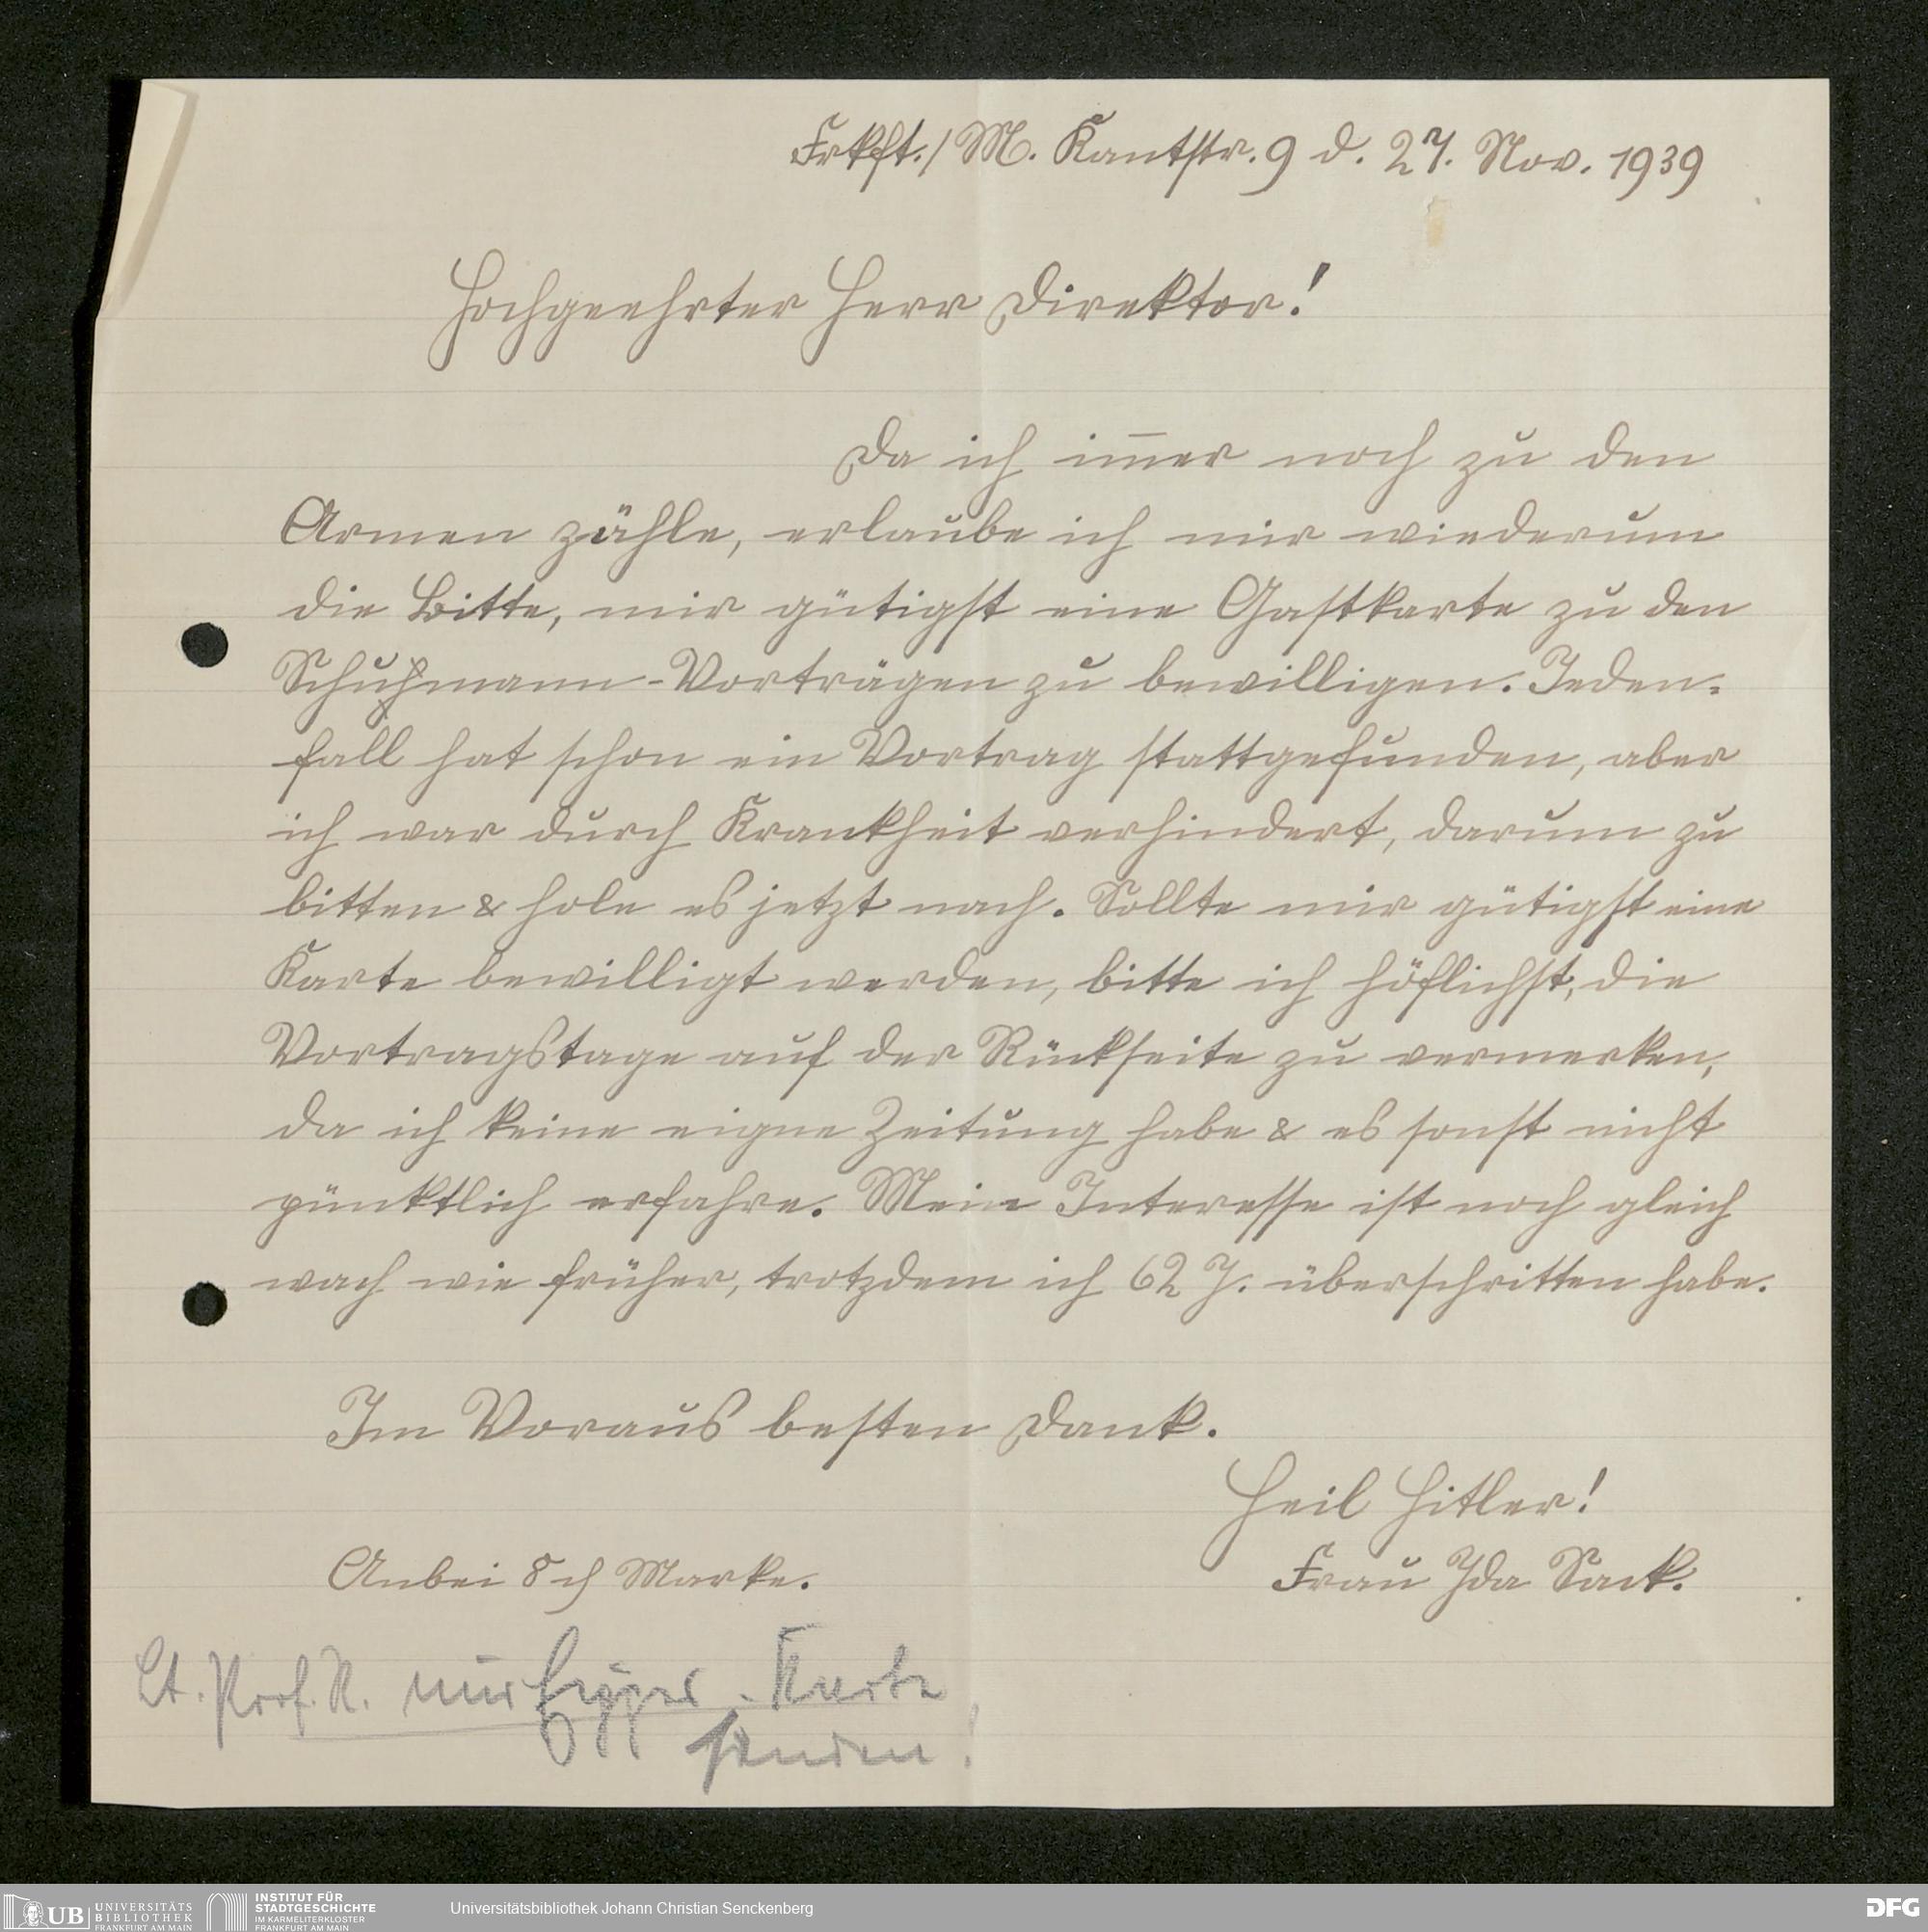 Frkft./M. Kantstr. 9 d. 27. Nov. 1939
Hochgeehrter Herr Direktor!
Da ich im̅er noch zu den
Armen zähle, erlaube ich mir wiederum
die Bitte, mir gütigst eine Gastkarte zu den
Schuhmann-Vorträgen zu bewilligen. Jeden-
fall hat schon ein Vortrag stattgefunden, aber
ich war durch Krankheit verhindert, darum zu
bitten & hole es jetzt nach. Sollte mir gütigst eine
Karte bewilligt werden, bitte ich höflichst, die
Vortragstage auf der Rückseite zu vermerken,
da ich keine eigne Zeitung habe & es sonst nicht
pünktlich erfahre. Mein Interesse ist noch gleich
wach wie früher, trotzdem ich 62 J. überschritten habe.
Im Voraus besten Dank.
Heil Hitler!
Anbei 8 ₰ Marke.
Frau Ida Sack.
Lt. Prof. R. nur Karte
senden!
UB UNIVERSITÄTS
BIBLIOTHEK
FRANKFURT AM MAIN
INSTITUT FÜR
STADTGESCHICHTE
IM KARMELITERKLOSTER
FRANKFURT AM MAIN
Universitätsbibliothek Johann Christian Senckenberg
DFG